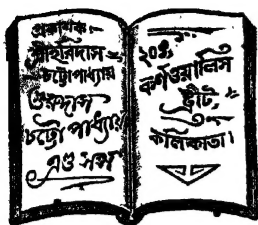 প্রকাশক:
শ্রীহরিদাস
চট্টোপাধ্যায়
গুরুদাস
চট্টোপাধ্যায়
এণ্ড সন্স
২০৩
কর্ণওয়ালিস
ষ্ট্রীট,
কলিকাতা।